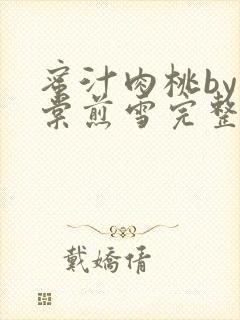 蜜汁肉桃by
棠煎雪完整
戴嬌倩